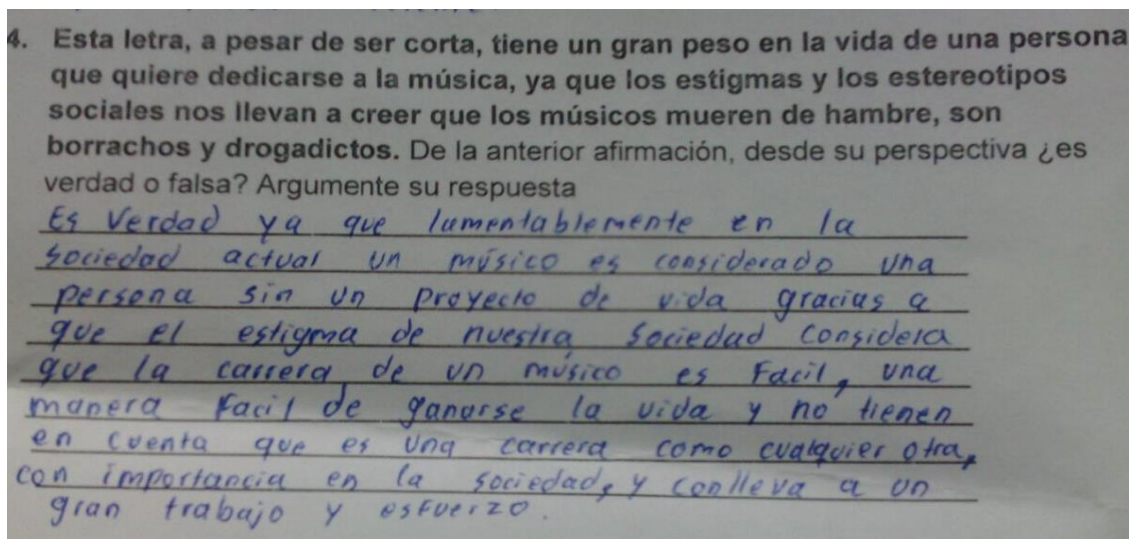 4. Esta letra, a pesar de ser corta, tiene un gran peso en la vida de una persona
que quiere dedicarse a la música, ya que los estigmas y los estereotipos
sociales nos llevan a creer que los músicos mueren de hambre, son
borrachos y drogadictos. De la anterior afirmación, desde su perspectiva ¿es
verdad o falsa? Argumente su respuesta
Es Verdad ya que lamentablemente en la
sociedad actual un músico es considerado una
persona sin un proyecto de vida gracias a
que el estigma de nuestra sociedad considera
que la carrera de un músico es Facil, una
manera Facil de ganarse la vida y no tienen
en cuenta que es una carrera como cualquier otra,
con importancia en la sociedad, y conlleva a un
gran trabajo y esfuerzo.